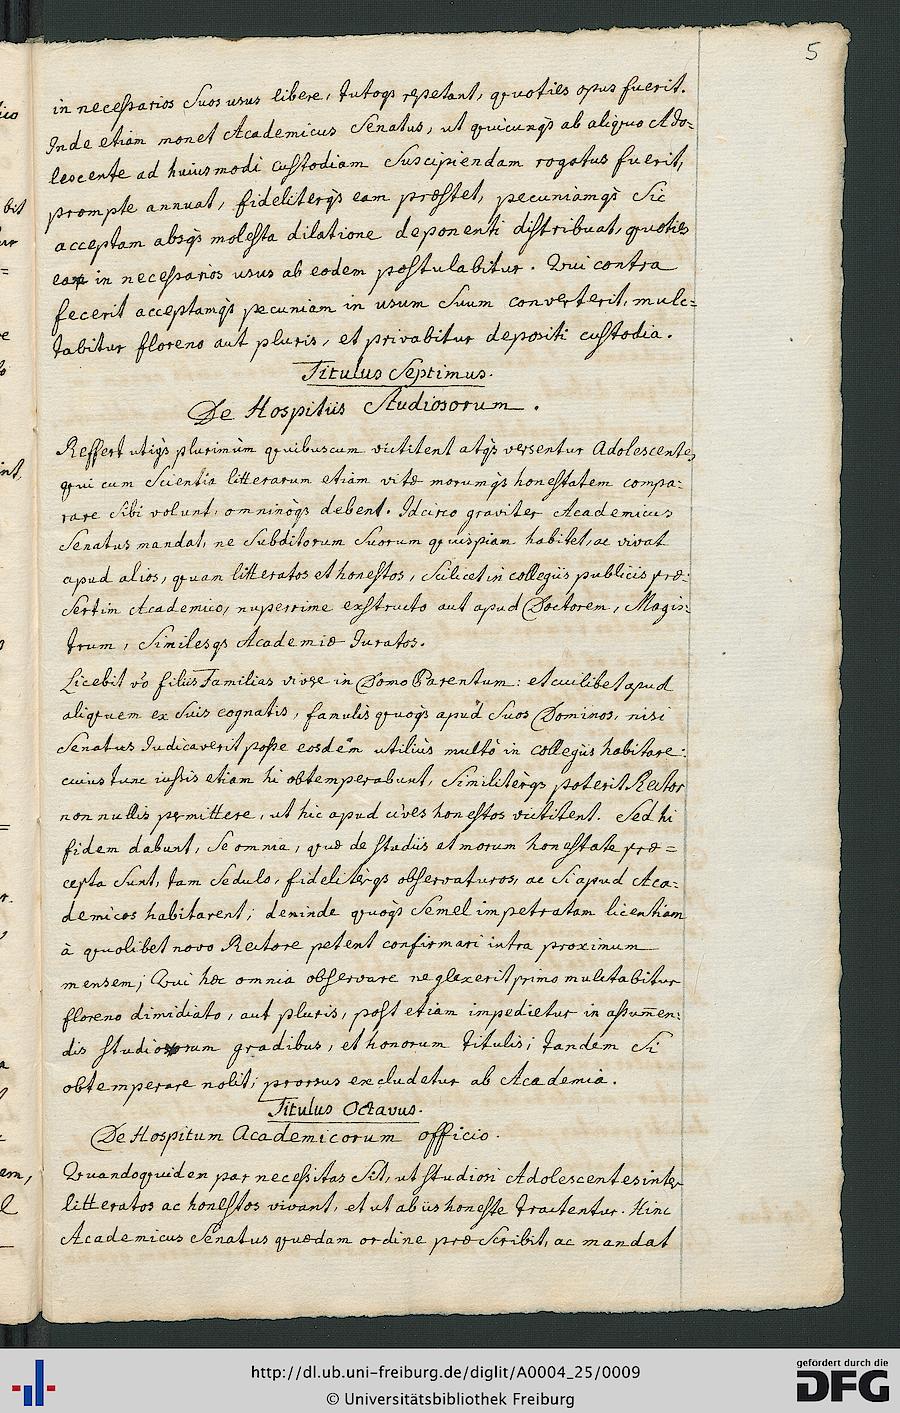 5
in necessarios suos usus libere, tutoqs repetant, quoties opus fuerit.
Inde etiam monet Academicus Senatus, ut quicunqs ab aliquo Ado=
lescente ad huiusmodi custodiam suscipiendam rogatus fuerit,
prompte annuat, fideliterqs eam præstet, pecuniamqs sic
acceptam absqs molesta dilatione deponenti distribuat, quoties
ea in necessarios usus ab eodem postulabitur. Qui contra
fecerit acceptamqs pecuniam in usum suum converterit, mulc=
tabitur floreno aut pluris, et privabitur depositi custodia.
Titulus Septimus.
De Hospitiis Studiosorum.
Reffert utiqs plurimùm quibuscum victitent atqs versentur Adolescentes,
qui cum scientia litterarum etiam vitæ morumqs honestatem compa:
rare sibi volunt, omninòqs debent. Idcirco graviter Academicus
Senatus mandat, ne subditorum suorum quispiam habitet, ac vivat
apud alios, quam litteratos et honestos, scilicet in collegiis publicis præ:
sertim Academico, nuperrime exstructo aut apud Doctorem, Magis:
trum, similesqs Academiæ Iuratos.
Licebit vo filius Familias vivere in Domo Parentum: et cuilibet apud
aliquem ex suis cognatis, famulis quoqs apud suos Dominos, nisi
Senatus Iudicaverit posse eosdem utiliùs multò in collegiis habitare:
cuius tunc iussis etiam hi obtemperabunt, similitèrqs poterit Rector
non nullis permittere, ut hic apud cives honestos victitent. Sed hi
fidem dabunt, se omnia, quæ de studiis et morum honestate præ=
cepta sunt, tam sedulo, fidelitèrqs observaturos, ac si apud Aca=
demicos habitarent; deninde quoqs semel impetratam licentiam
à quolibet novo Rectore petent confirmari intra proximum
mensem; Qui hæc omnia observare neglexerit primo mulctabitur
floreno dimidiato, aut pluris, post etiam impedietur in assumen:
dis studiorum gradibus, et honorum titulis; tandem si
obtemperare nolit; prorsus excludetur ab Academia.
Titulus Octavus.
De Hospitum Academicorum officio.
Quandoquiden par necessitas sit, ut studiosi Adolescentes inter
litteratos ac honestos vivant, et ut ab iis honeste tractentur. Hinc
Academicus Senatus quædam ordine præscribit, ac mandat
http://dl.ub.uni-freiburg.de/diglit/A0004_25/0009
© Universitätsbibliothek Freiburg
gefördert durch die
DFG